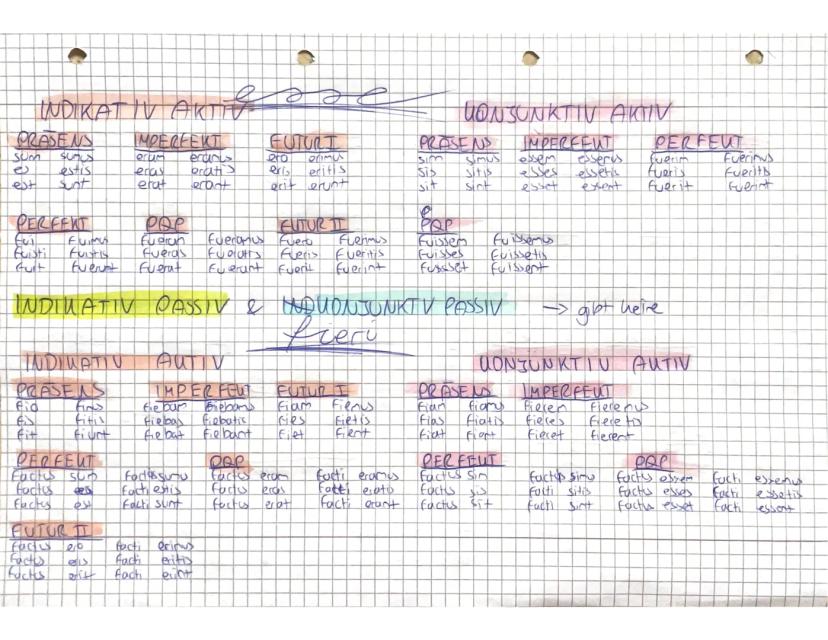 esse
INDIKATIV AKTIV KONJUNKTIV AKTIV
PRÄSENS IMPERFEKT FUTUR I PRÄSENS IMPERFEKT PERFEKT
sum sumus eram eramus ero erimus sim simus essem essemus fuerim fuerimus
es estis eras eratis eris eritis sis sitis esses essetis fueris fueritis
est sunt erat erant erit erunt sit sint esset essent fuerit fuerint
PERFEKT PQP FUTUR II PQP
fui fuimus fueram fueramus fuero fuerimus fuissem fuissemus
fuisti fuistis fueras fueratis fueris fueritis fuisses fuissetis
fuit fuerunt fuerat fuerant fuerit fuerint fuisset fuissent
INDIKATIV PASSIV & KONJUNKTV PASSIV → gibt keine
fieri
INDIKATIV AKTIV KONJUNKTIV AKTIV
PRÄSENS IMPERFEKT FUTUR I PRÄSENS IMPERFEKT
fio fimus fiebam fiebamus fiam fiemus fiam fiamus fierem fieremus
fis fitis fiebas fiebatis fies fietis fias fiatis fieres fieretis
fit fiunt fiebat fiebant fiet fient fiat fiant fieret fierent
PERFEKT PQP PERFEKT PQP
factus sum facti sumus factus eram facti eramus factus sim facti simus factus essem facti essemus
factus es facti estis factus eras facti eratis factus sis facti sitis factus esses facti essetis
factus est facti sunt factus erat facti erant factus sit facti sint factus esset facti essent
FUTUR II
factus ero facti erimus
factus eris facti eritis
factus erit facti erint